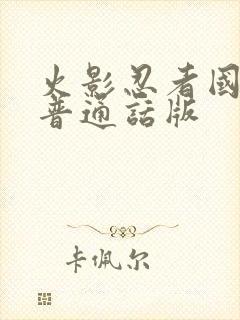 火影忍者國
普通話版
卡佩尔